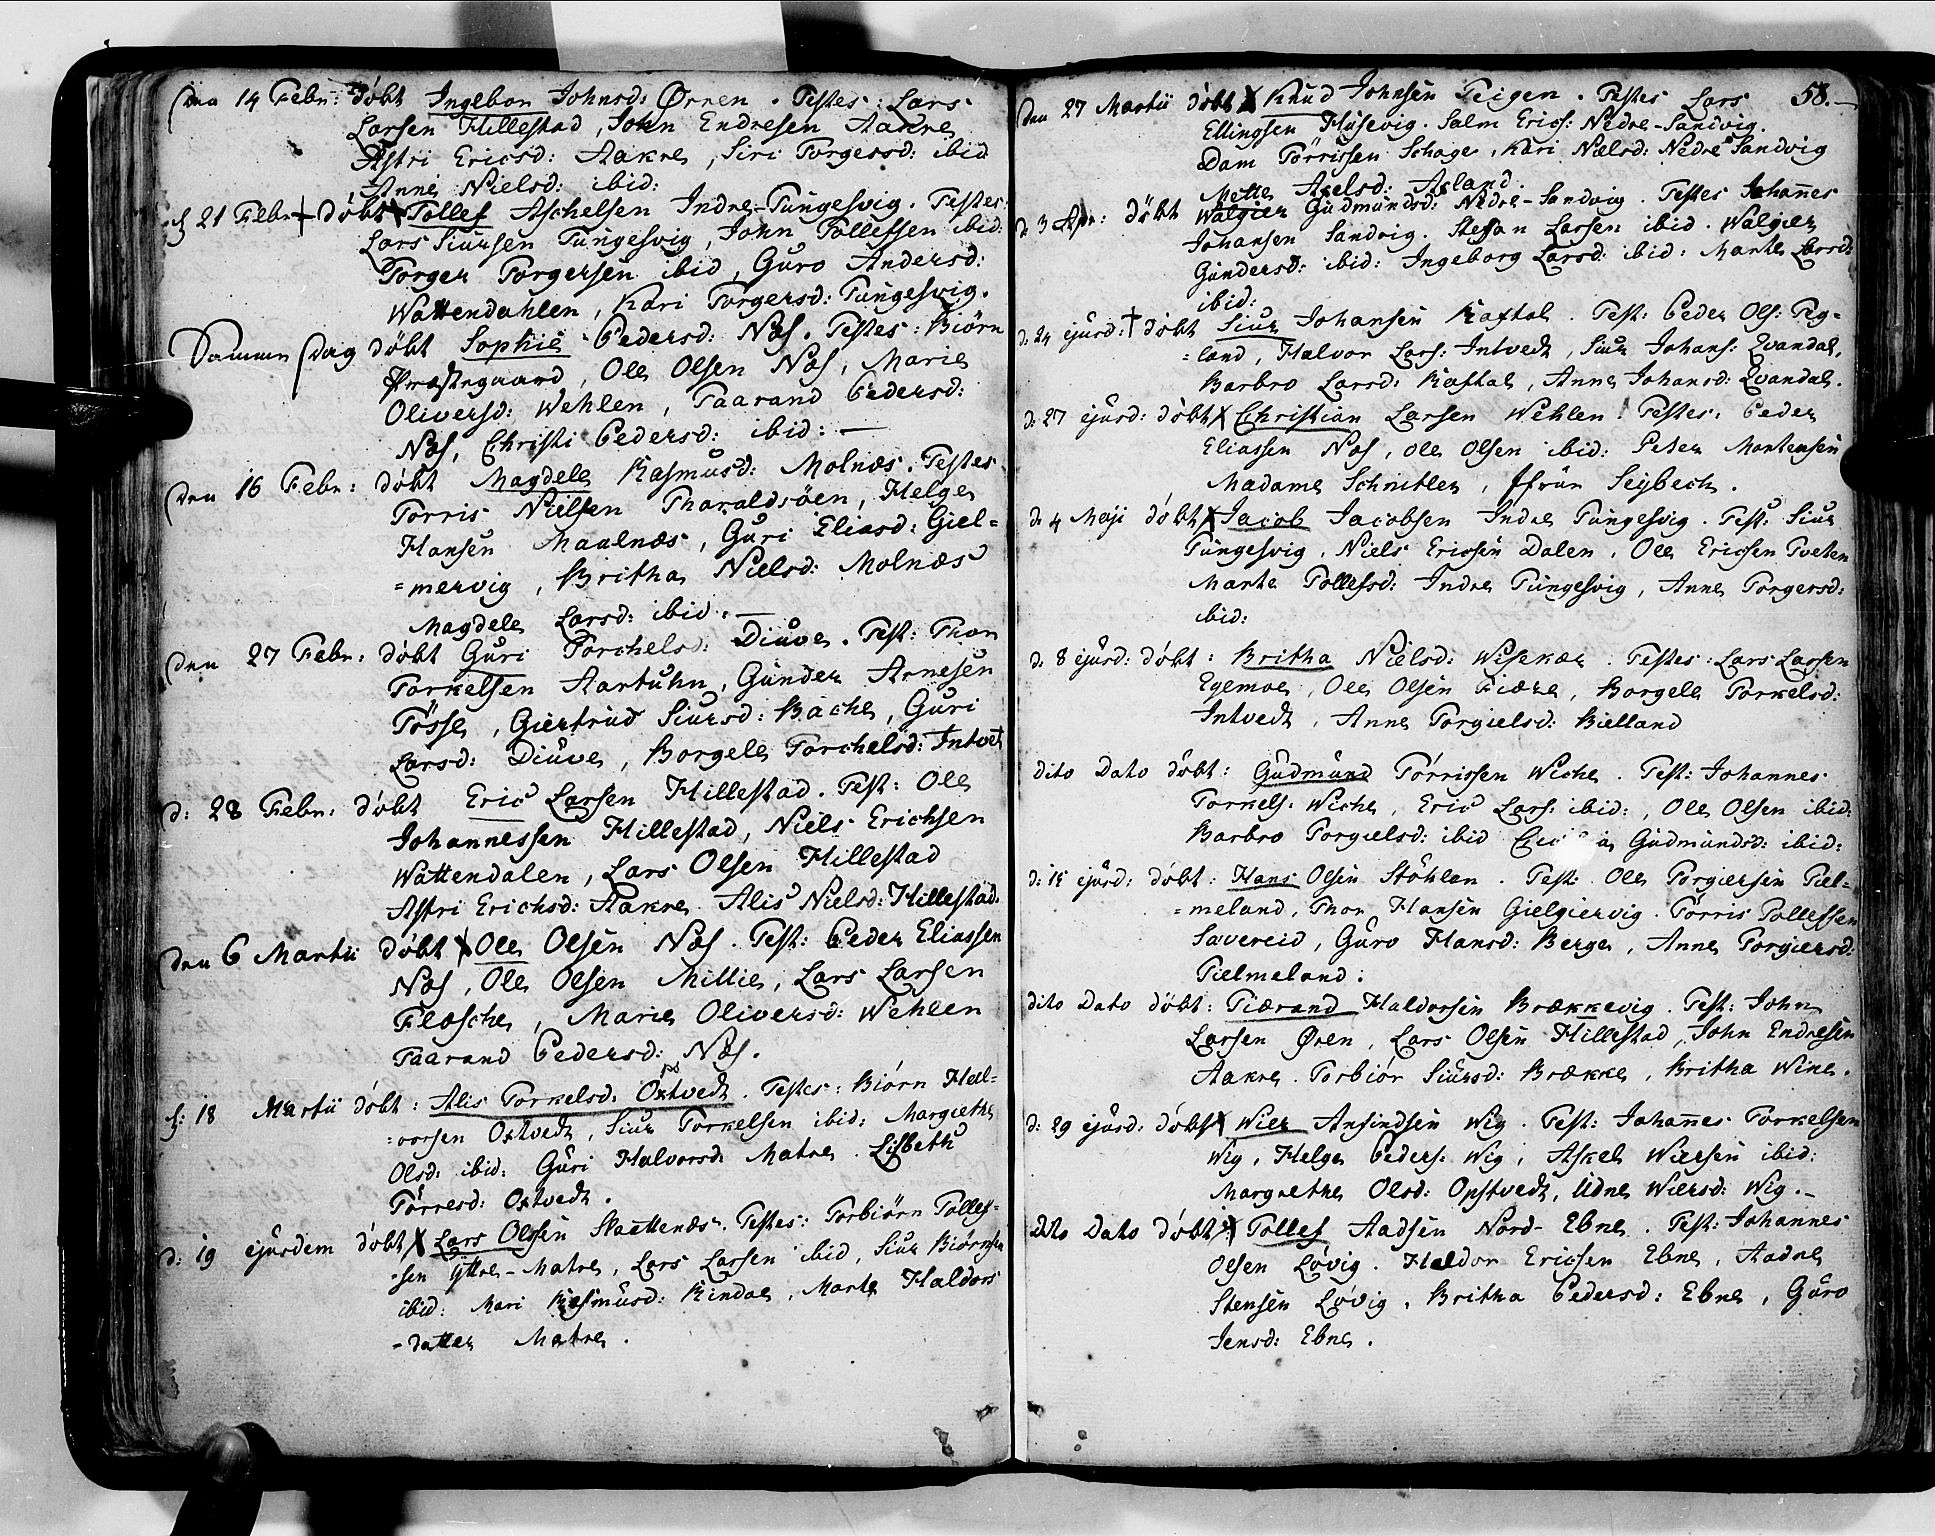 Den 14 Febr: döbt Ingebor Johnsd: Ørnen. Testes: Lars
Larsen Hillestad, John Endresen Aakre
Astri Ericsd: Aakre, Siri Torgersd: ibid
Anne Nielsd: ibid:
d: 21 Febr: döbt Tollef Aschelsen Indre-Tungesvig. Testes:
Lars Siursen Tungesvig, John Tollefsen ibid:
Torger Torgersen ibid, Guro Andersd:
Wattendahlen, Kari Torgersd: Tungesvig.
Samme Dag döbt Sophie Pedersd: Næs. Testes: Biörn
Præstegaard, Ole Olsen Næs, Marie
Oliversd: Wehlen, Taarand Pedersd:
Næs, Christi Pedersd: ibid: —
Den 16 Febr: döbt Magdele Rasmusd: Molnæs. Testes
Torris Nielsen Tharaldsöen, Helge
Hansen Maalnæs, Guri Eliasd: Giel-
=mervig, Britha Nielsd: Molnæs
Magdele Larsd: ibid. —
Den 27 Febr: döbt Guri Torchelsd: Diuve. Test: Thor
Torkelsen Aartuhn, Gunder Arnesen
Tösse, Giertrud Siursd: Bache, Guri
Larsd: Diuve, Borgele Torchelsd: Intvet
d: 28 Febr: döbt Eric Larsen Hillestad. Test: Ole
Johannessen Hillestad, Niels Erichsen
Wattendalen, Lars Olsen Hillestad
Astri Erichsd: Aakre. Alis Nielsd: Hillestad.
Den 6 Martii döbt Ole Olsen Næs. Test: Peder Eliassen
Næs, Ole Olsen Millie, Lars Larsen
Flasche, Marie Oliversd: Wehlen
Taarand Pedersd: Næs.
d: 18 Martii döbt: Alis Torkelsd: Oxtvedt. Testes: Biörn Hal-
=vorsen Oxtvedt, Siur Torkelsen ibid: Margrethe
Olsd: ibid: Guri Halvorsd: Matre. Lisbeth
Törresd: Oxtvedt.
d: 19 ejusdem döbt Lars Olsen Skættenæs. Testes: Torbiörn Tollef-
-sen Yttre-Matre, Lars Larsen ibid, Siur Biörnsen
ibid: Mari Rasmusd: Rindae, Marte Haldors
-datter Matre.
58.—
Den 27 Martii döbt Knud Johnsen Teigen. Testes Lars
Ellingsen Husevig. Salm Erics: Nedre-Sandvig.
Dam Törrissen Schage, Kari Nielsd: Nedre Sandvig
Mette Axelsd: Axland.
d: 3 Apr: döbt Walgier Gudmundsd: Nedre-Sandvig. Testes Johannes
Johansen Sandvig. Steffan Larsen ibid. Walgier
Gundersd: ibid: Ingeborg Larsd: ibid: Marte Larsd:
ibid:
d: 24 ejusd: döbt Siur Johansen Kaftal. Test: Peder Ols: Teg-
=land, Halvor Lars: Intvedt, Siur Johans: Qvandal,
Barbro Larsd: Kaftal, Anne Johansd: Qvandal.
d: 27 ejusd: döbt Christian Larsen Wehlen. Testes: Peder
Eliassen Næs, Ole Olsen ibid: Peter Mortensen
Madame Schnitler, Jfrue Seybech.
d: 4 Maji döbt Jacob Jacobsen Indre Tungesvig. Test: Siur
Tungesvig, Niels Ericsen Dalen, Ole Ericsen Tveten
Marte Tollefsd: Indre Tungesvig, Anne Torgersd:
ibid:
d: 8 ejusd: döbt: Britha Nielsd: Wisekær. Testes: Lars Larsen
Egemoe, Ole Olsen Fiære, Borgele Torkelsd:
Intvedt, Anne Torgielsd: Bielland
dito Dato döbt: Gudmund Törrissen Wiche. Test: Johannes
Torkels: Wiche, Eric Lars: ibid:, Ole Olsen ibid:
Barbro Torgielsd: ibid Gudmundsd: ibid:
d: 15 ejusd: döbt: Hans Olsen Stöhlen. Test: Ole Torgiersen Tiel-
=meland, Thor Hansen Gielgiervig. Törris Tollefsen
Savereid, Guro Hansd: Berge, Anne Torgiersd:
Tielmeland.
dito Dato döbt: Tiærand Haldorsen Brækkevig. Test: John
Larsen Øren, Lars Olsen Hillestad, John Endresen
Aakre. Torbiör Siursd: Brække, Britha Wine.
d: 29 ejusd: döbt Wier Ansindsen Wig. Test: Johannes Torkelsen
Wig, Helge Peders: Wig, Askel Wiersen ibid:
Margrethe Olsd: Opstvedt, Udne Wiersd: Wig.—
Dito Dato döbt Tollef Aadsen Nord-Ebne. Test: Johannes
Olsen Lövig. Haldor Ericsen Ebne, Aadne
Stensen Lövig, Britha Pedersd: Ebne, Guro
Jensd: Ebne.